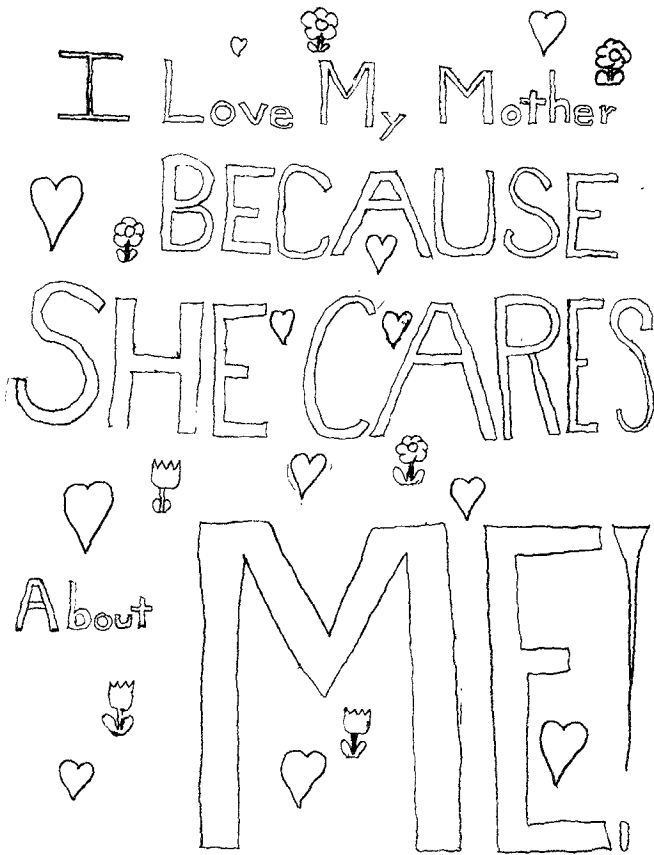 I Love My Mother
BECAUSE
SHE CARES
About ME!